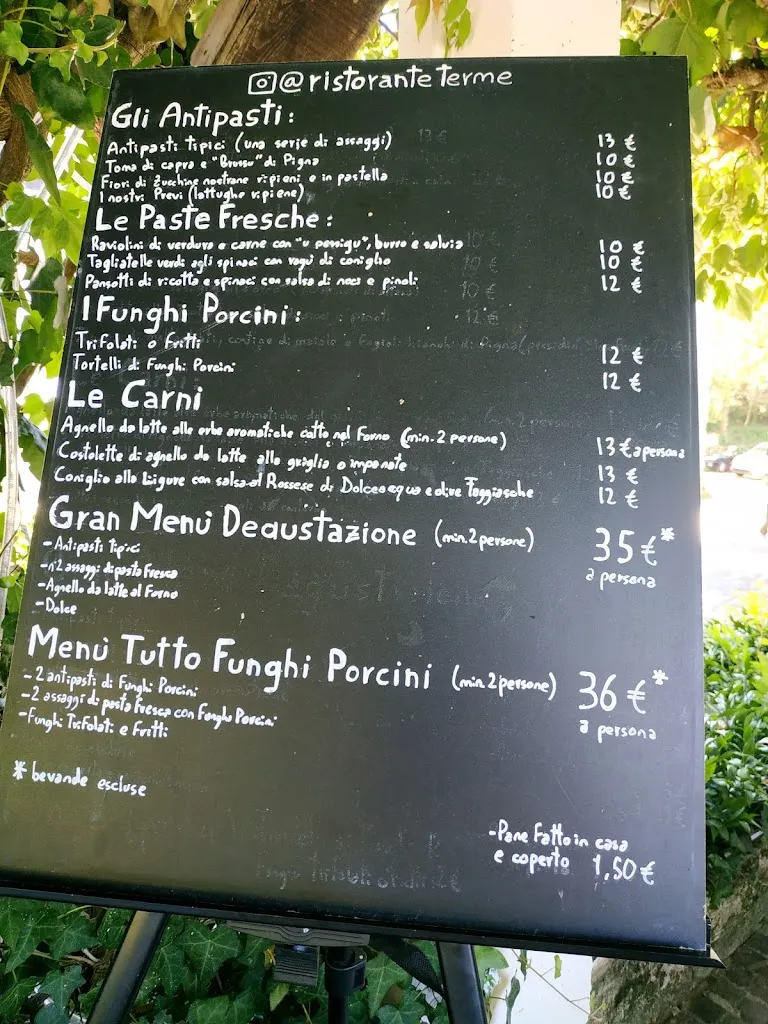 @ristoranteterme
Gli Antipasti:
Antipasti tipici (una serie di assaggi) 13 €
Toma di capra e "Brussu" di Pigna 10 €
Fiori di zucchine nostrane ripieni e in pastella 10 €
I nostri Previ (lattughe ripiene) 10 €
Le Paste Fresche:
Raviolini di verdura e carne con "u persigu", burro e salvia 10 €
Tagliatelle verdi agli spinaci con ragù di coniglio 10 €
Pansotti di ricotta e spinaci con salsa di noci e pinoli 12 €
I Funghi Porcini:
Trifolati o Fritti 12 €
Tortelli di Funghi Porcini 12 €
Le Carni
Agnello da latte alle erbe aromatiche cotto nel forno (min. 2 persone) 13 € a persona
Costolette di agnello da latte alla griglia o impanate 13 €
Coniglio alla Ligure con salsa al Rossese di Dolceacqua e olive Taggiasche 12 €
Gran Menù Degustazione (min. 2 persone) 35 €*
a persona
- Antipasti tipici
- n°2 assaggi di pasta fresca
- Agnello da latte al Forno
- Dolce
Menù Tutto Funghi Porcini (min. 2 persone) 36 €*
a persona
- 2 antipasti di Funghi Porcini
- 2 assaggi di pasta fresca con Funghi Porcini
- Funghi Trifolati e Fritti
* bevande escluse
- Pane Fatto in casa
e coperto 1,50 €